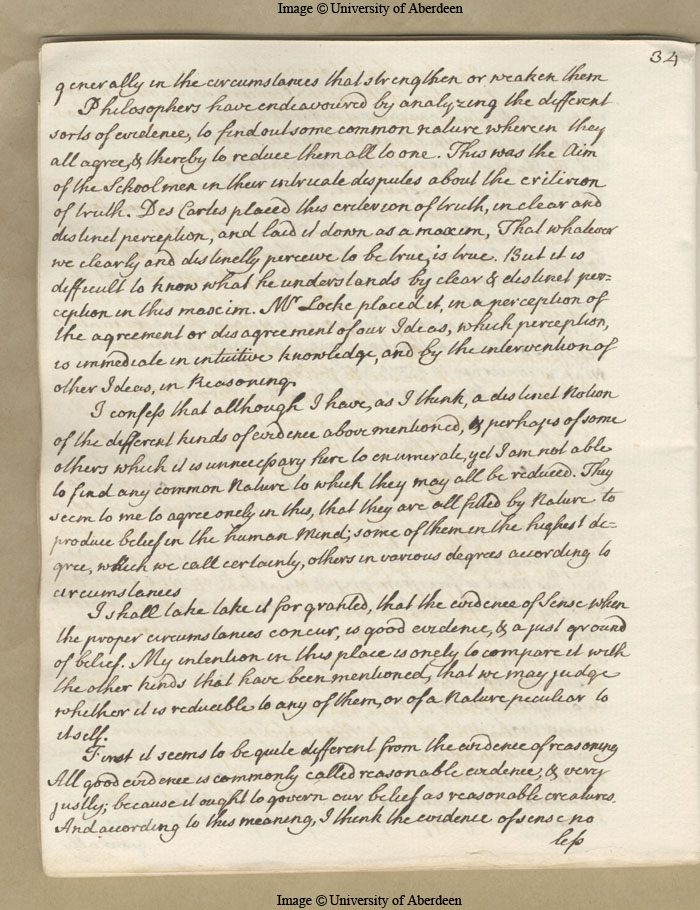 Image © University of Aberdeen
34
generally in the circumstances that strengthen or weaken them
Philosophers have endeavoured by analyzing the different
sorts of evidence, to find out some common nature wherein they
all agree, & thereby to reduce them all to one. This was the Aim
of the Schoolmen in their intricate disputes about the criterion
of truth. Des Cartes placed this criterion of truth, in clear and
distinct perception, and laid it down as a maxim, That whatever
we clearly and distinctly perceive to be true, is true. But it is
difficult to know what he understands by clear & distinct per=
ception in this maxim. Mr Locke placed it, in a perception of
the agreement or disagreement of our Ideas, which perception,
is immediate in intuitive knowledge, and by the intervention of
other Ideas, in Reasoning.
I confess that although I have, as I think, a distinct Notion
of the different kinds of evidence above mentioned, & perhaps of some
others which it is unnecessary here to enumerate, yet I am not able
to find any common Nature to which they may all be reduced. They
seem to me to agree onely in this, that they are all fitted by Nature to
produce belief in the human Mind; some of them in the highest de=
gree, which we call certainty, others in various degrees according to
circumstances
I shall take take it for granted, that the evidence of Sense when
the proper circumstances concur, is good evidence, & a just ground
of belief. My intention in this place is onely to compare it with
the other kinds that have been mentioned, that we may judge
whether it is reducible to any of them, or of a Nature peculiar to
itself.
First it seems to be quite different from the evidence of reasoning
All good evidence is commonly called reasonable evidence, & very
justly; because it ought to govern our belief as reasonable creatures.
And according to this meaning, I think the evidence of sense no
less
Image © University of Aberdeen